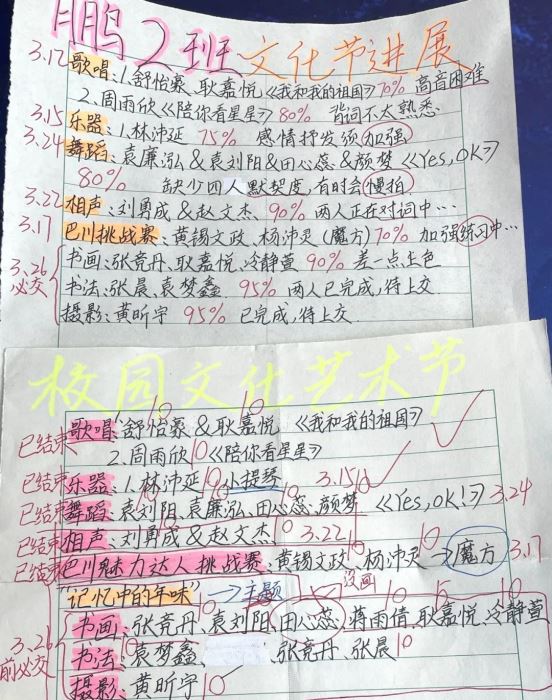 鹏2班文化节进展
3.17 歌唱:1.舒怡豪、耿嘉悦《我和我的祖国》70% 高音困难
2.周雨欣《陪你看星星》80% 背词不太熟悉
3.15 乐器:1.林沖延 75% 感情抒发须加强
3.24 舞蹈:袁廉泓&袁刘阳&田心蕊&颜梦《Yes,OK》
80% 缺少四人默契度,有时会慢拍
3.22 相声:刘勇成&赵文杰 90% 两人正在对词中…
3.17 巴川挑战赛:黄锡文政、杨沖灵(魔方)70% 加强练习中…
3.26必交 书画:张竞丹、耿嘉悦、冷静萱 90% 差一点上色
书法:张晨、袁梦鑫 95% 两人已完成,待上交
摄影:黄昕宇 95% 已完成,待上交
校园文化艺术节
10 10
已结束 歌唱:1.舒怡豪&耿嘉悦《我和我的祖国》
2.周雨欣10《陪你看星星》
已结束 乐器:1.林沖延10 小提琴 3.15
已结束 舞蹈:袁刘阳、袁廉泓、田心蕊、颜梦《Yes,OK!》3.24
已结束 相声:刘勇成&赵文杰 10 3.22
已结束 巴川魅力达人挑战赛:黄锡文政、杨沖灵→魔方 3.17
"记忆中的年味"→主题 没画
3.26前必交 书画:张竞丹、袁刘阳、田心蕊、蒋雨倩、耿嘉悦、冷静萱
书法:袁梦鑫、张竞丹、张晨10
摄影:黄昕宇10